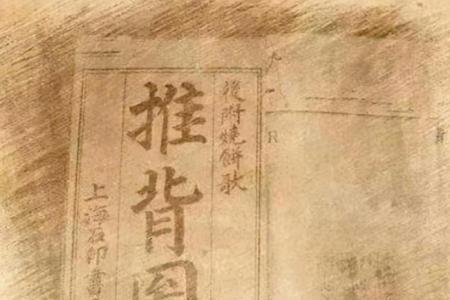 後附燒餅歌
推背圖
上海石印書